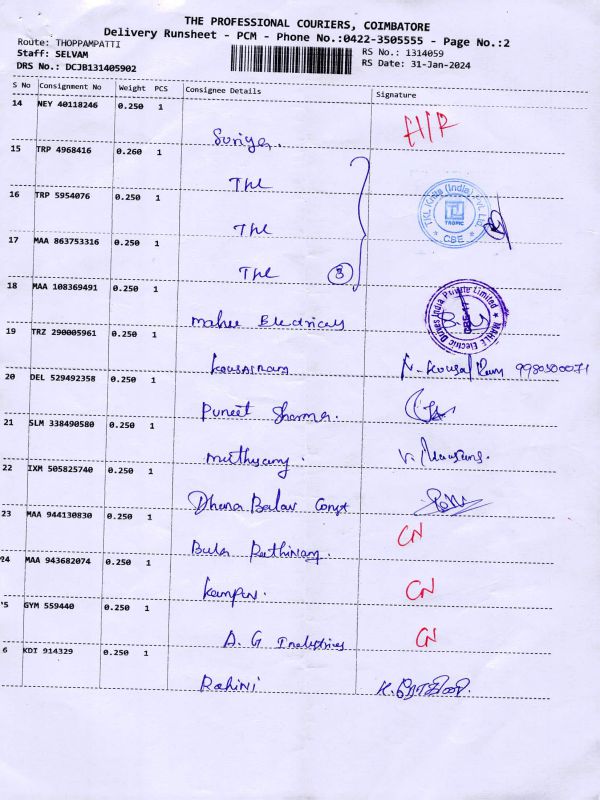 THE PROFESSIONAL COURIERS, COIMBATORE
Delivery Runsheet - PCM - Phone No.:0422-3505555 - Page No.:2
Route: THOPPAMPATTI
RS No.: 1314059
Staff: SELVAM
RS Date: 31-Jan-2024
DRS No.: DCJB131405902
S No Consignment No Weight PCS Consignee Details Signature
14 NEY 40118246 0.250 1
Suriya. H/R
15 TRP 4968416 0.260 1
THL
16 TRP 5954076 0.250 1
TKL Knits (India) Pvt Ltd
TROPIC
CBE
THL
17 MAA 863753316 0.250 1
THL 3
18 MAA 108369491 0.250 1
MAHLE Electric Drives India Private Limited
CBE-17
Mahle Electricals
19 TRZ 290005961 0.250 1
Kousalram N. Kousal Ram
20 DEL 529492358 0.250 1
Puneet Sharma.
21 SLM 338490580 0.250 1
22 IXM 505825740 0.250 1
Dhana
23 MAA 944130830 0.250 1
CN
24 MAA 943682074 0.250 1
CN
5 GYM 559440 0.250 1
A.G Industries CN
6 KDI 914329 0.250 1
Rohini